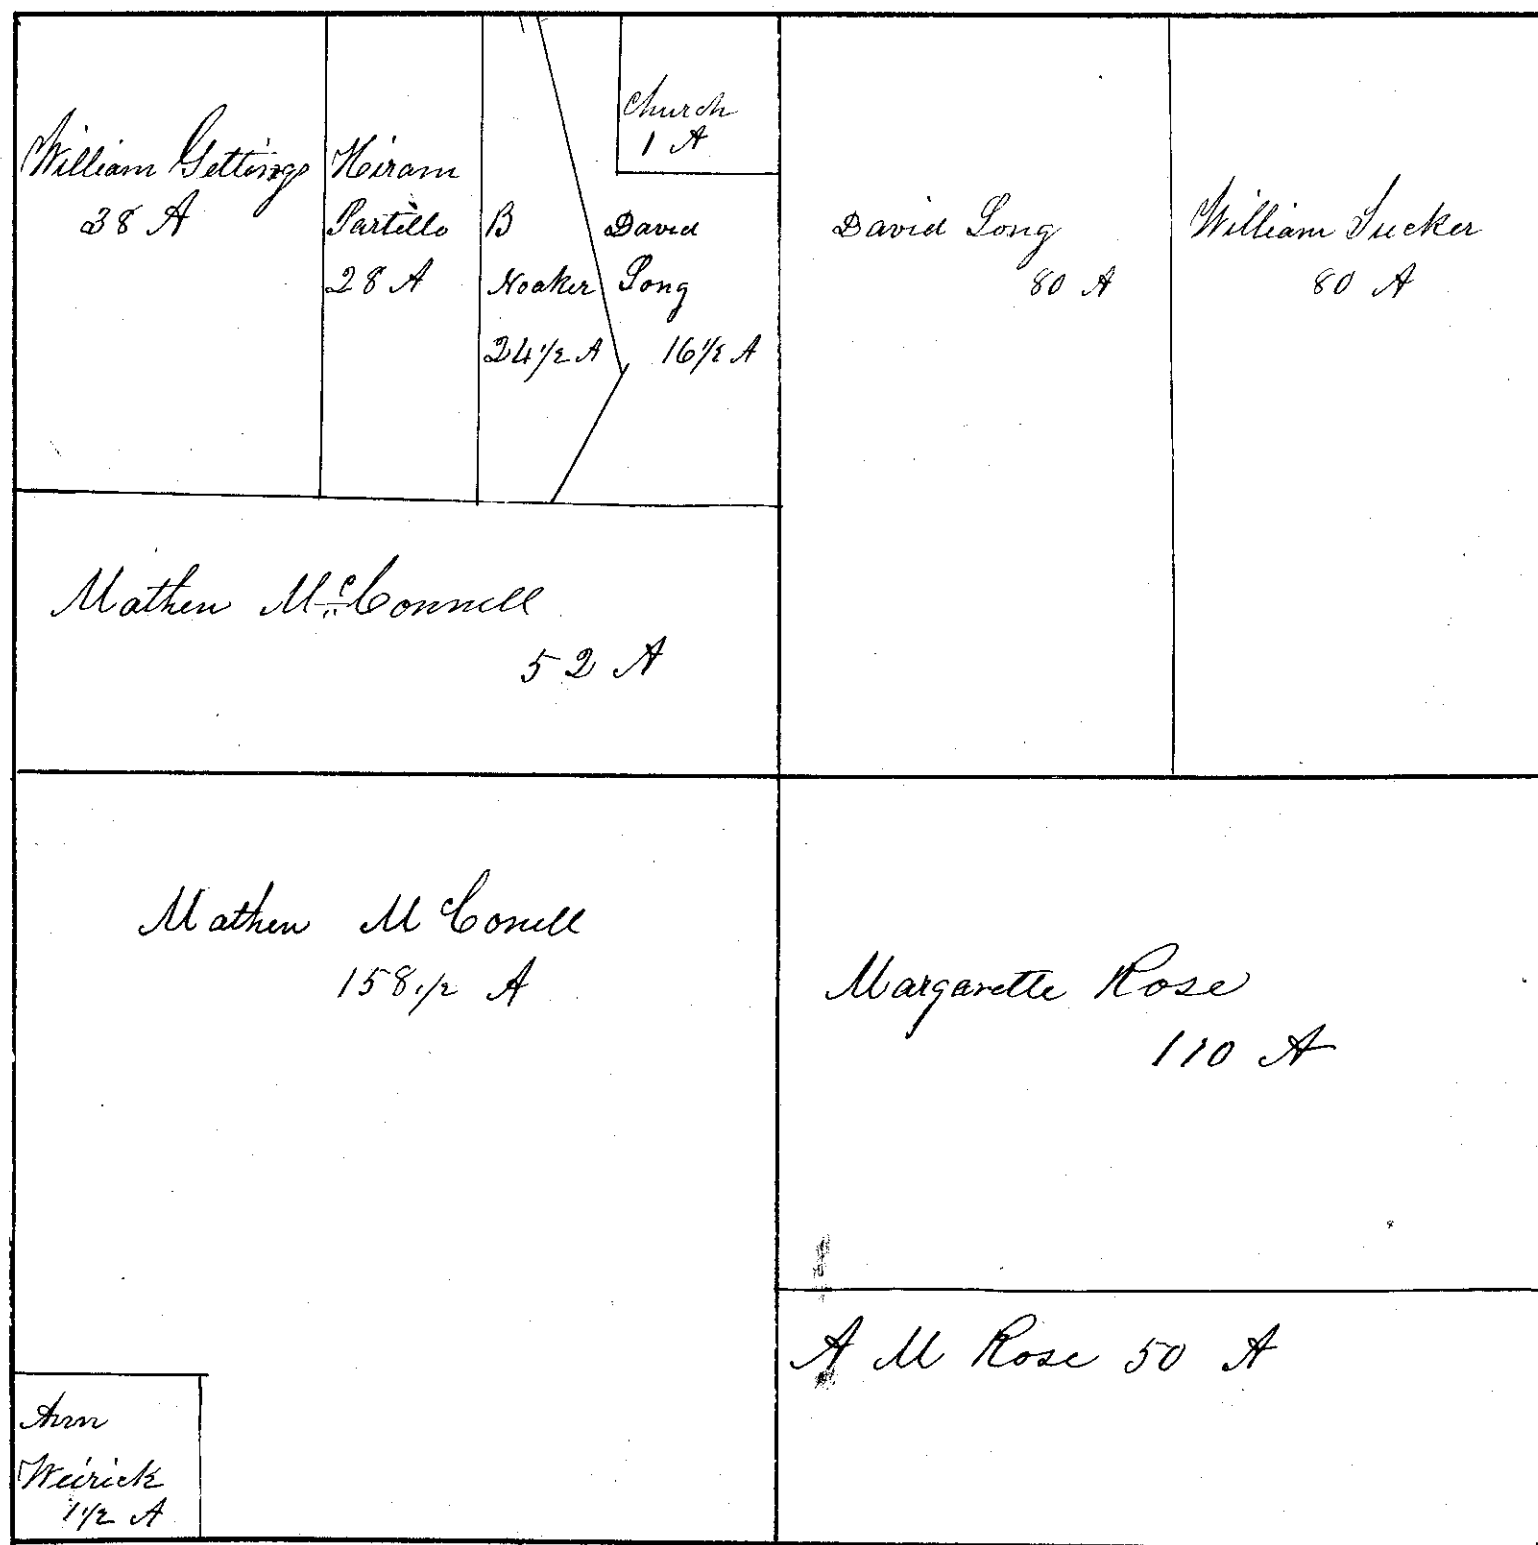 William Gettings
38 A
Hiram
Partillo
28 A
B
Noaker
24 1/2 A
Church
1 A
David
Long
16 1/2 A
David Long
80 A
William Tucker
80 A
Mathew McConnell
52 A
Mathew McConell
158 1/2 A
Margarette Rose
110 A
A M Rose 50 A
Ann
Weirick
1 1/2 A